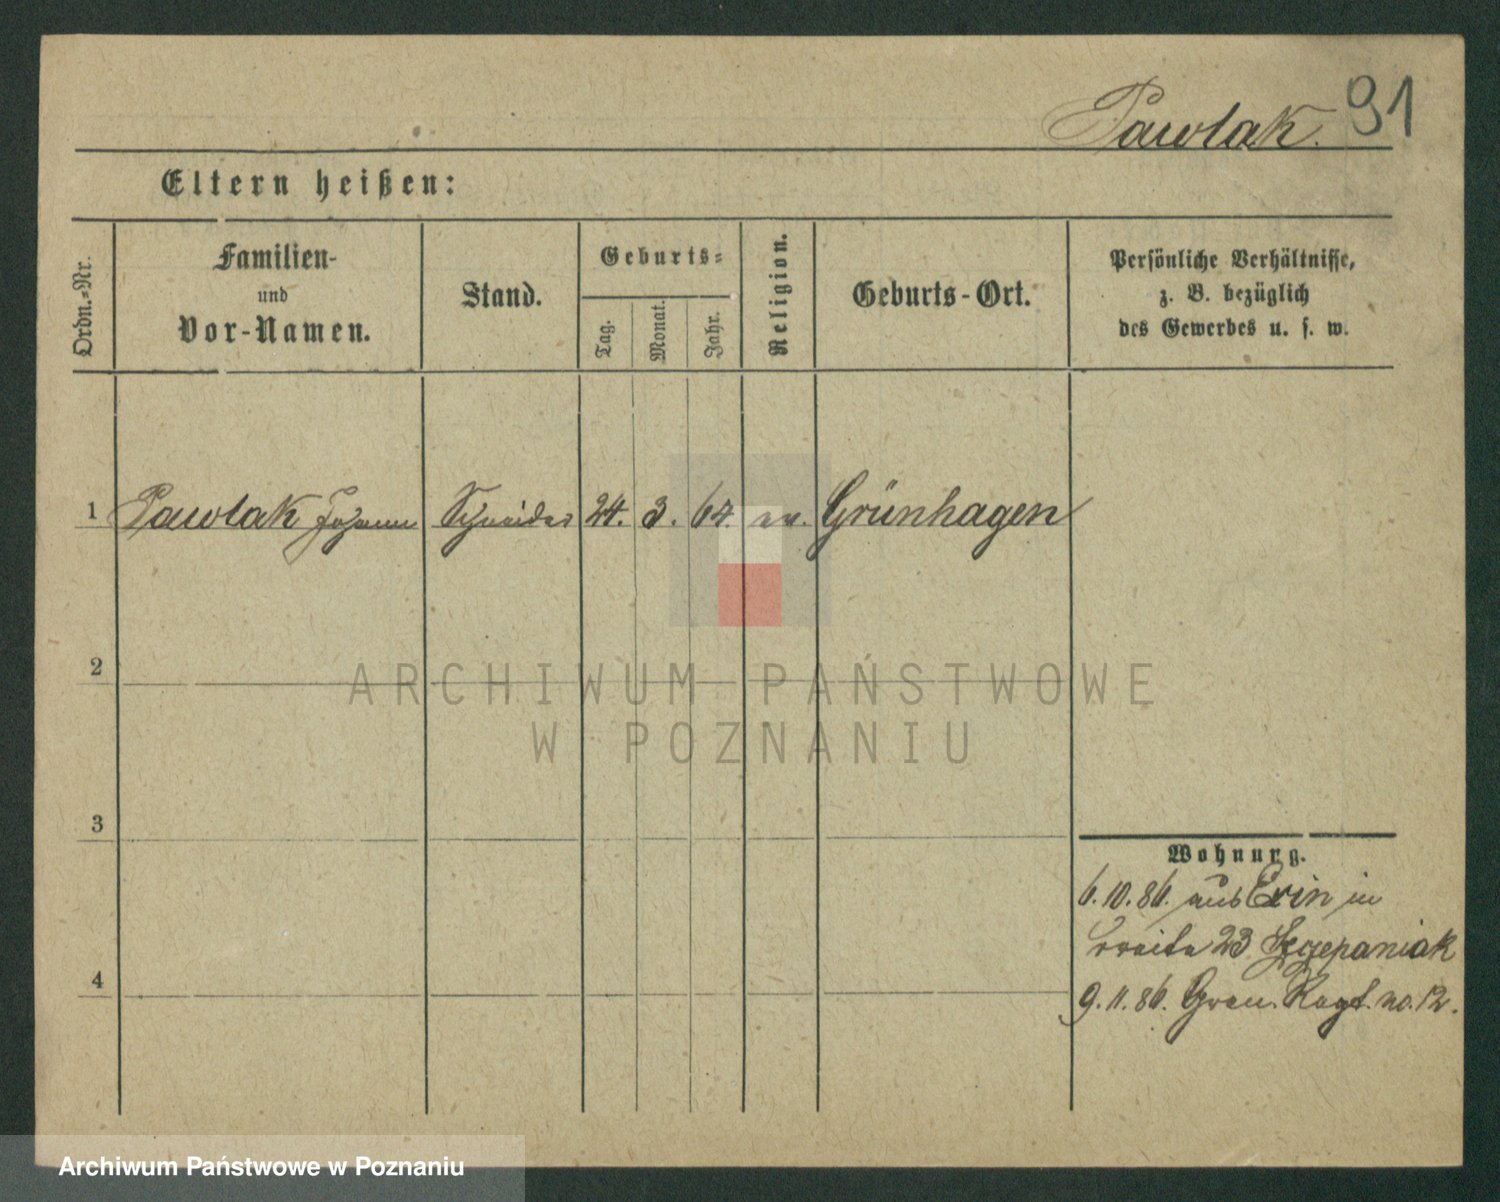 Pawlak. 91
Eltern heißen:
Ordn.-Nr.
Familien-
und
Vor-Namen.
Stand.
Geburts-
Tag.
Monat.
Jahr.
Religion.
Geburts-Ort.
Persönliche Verhältnisse,
z. B. bezüglich
des Gewerbes u. s. w.
1 Pawlak Johann Schneider 24. 3. 64. ev. Grünhagen
2
ARCHIWUM PAŃSTWOWE
W POZNANIU
3
Wohnung.
6.10.86. aus Exin in
Breite 23 Szczepaniak
4
9.11.86. Gren. Regt. no. 12.
Archiwum Państwowe w Poznaniu